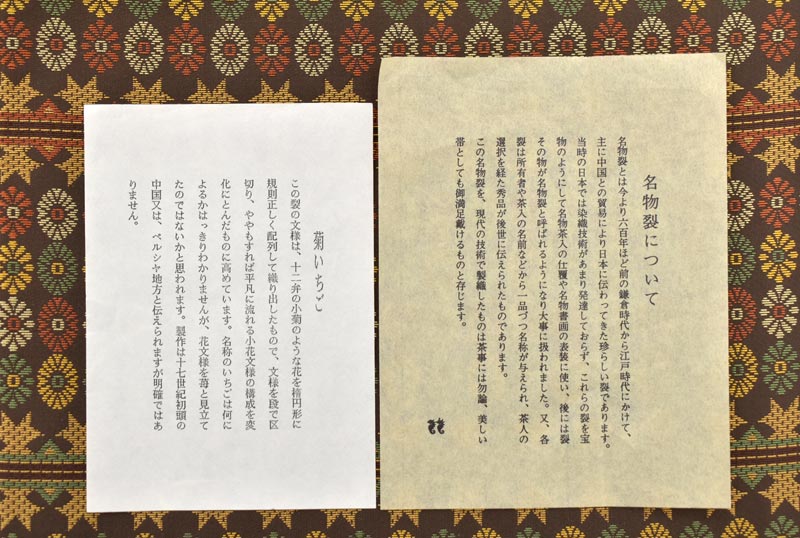 名物裂について
名物裂とは今より六百年ほど前の鎌倉時代から江戸時代にかけて、
主に中国との貿易により日本に伝わってきた珍らしい裂であります。
当時の日本では染織技術があまり発達しておらず、これらの裂を宝
物のようにして名物茶入の仕覆や名物書画の表装に使い、後には裂
その物が名物裂と呼ばれるようになり大事に扱われました。又、各
裂は所有者や茶人の名前などから一品づつ名称が与えられ、茶人の
選択を経た秀品が後世に伝えられたものであります。
この名物裂を、現代の技術で製織したものは茶事には勿論、美しい
帯としても御満足戴けるものと存じます。
菊いちご
この裂の文様は、十二弁の小菊のような花を楕円形に
規則正しく配列して織り出したもので、文様を段で区
切り、ややもすれば平凡に流れる小花文様の構成を変
化にとんだものに高めています。名称のいちごは何に
よるかはっきりわかりませんが、花文様を苺と見立て
たのではないかと思われます。製作は十七世紀初頭の
中国又は、ペルシヤ地方と伝えられますが明確ではあ
りません。